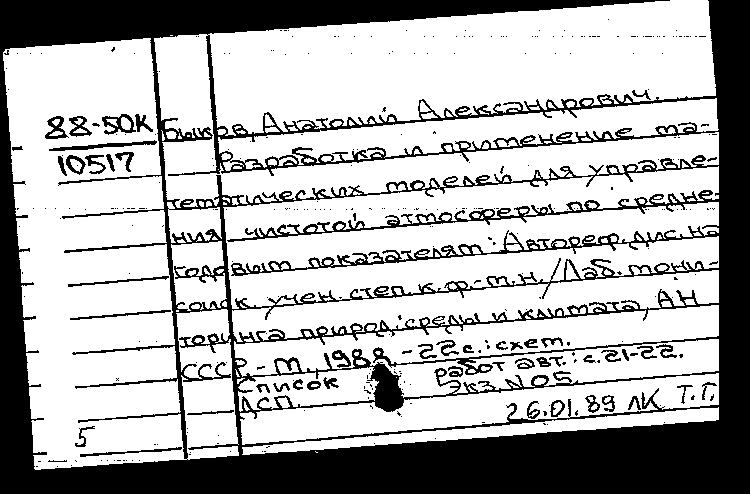 88-50К
10517
Быков, Анатолий Александрович.
Разработка и применение ма-
тематических моделей для управле-
ния чистотой атмосферы по средне-
годовым показателям: Автореф. дис. на
соиск. учен. степ. к.ф.-м.н. / Лаб. мони-
торинга природ. среды и климата, АН
СССР. - М., 1988. - 22 с.: схем.
Список работ авт.: с. 21-22.
ДСП. Экз. N 05.
26.01.89 ЛК Т.Г.
5